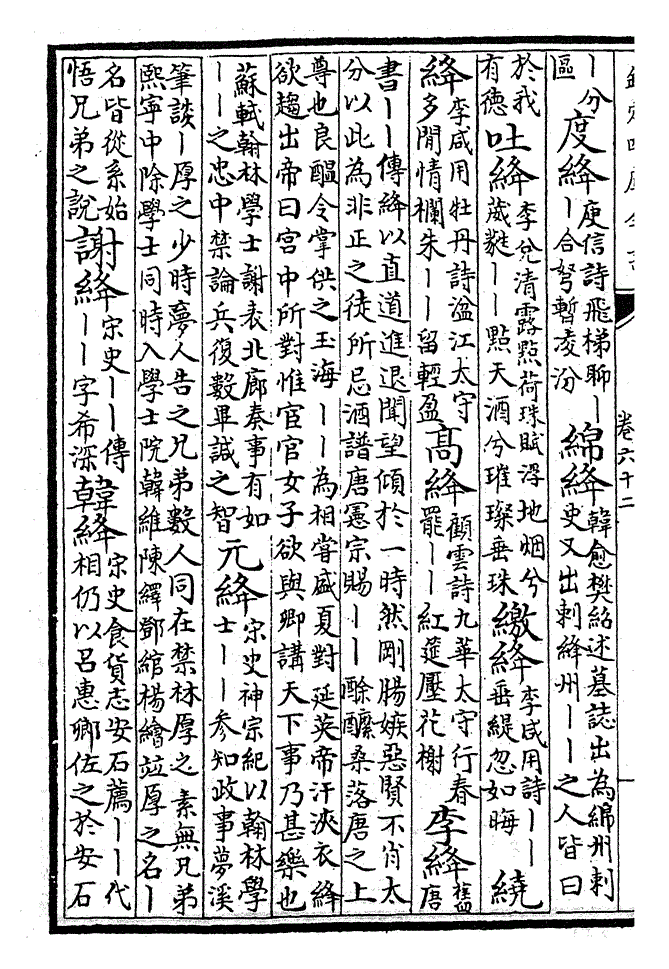 欽定四庫全書
卷六十二
丨分
區
度絳
庾信詩飛梯聊丨
丨合弩暫凌汾
綿絳
韓愈樊紹述墓誌出為綿州刺
史又出刺絳州丨丨之人皆曰
於我
有德
吐絳
李兊清露㸃荷珠賦浮地烟兮
葳蕤丨丨㸃天酒兮璀璨垂珠
繳絳
李咸用詩丨丨
垂緹忽如晦
繞
絳
李咸用牡丹詩湓江太守
多閒情欄朱丨丨留輕盈
高絳
顧雲詩九華太守行春
罷丨丨紅筵壓花榭
李絳
舊
唐
書丨丨傳絳以直道進退聞望傾於一時然剛腸嫉惡賢不肖太
分以此為非正之徒所忌酒譜唐憲宗賜丨丨酴醿桑落唐之上
尊也良醖令掌供之玉海丨丨為相嘗盛夏對延英帝汗浹衣絳
欲趨出帝曰宫中所對惟宦官女子欲與卿講天下事乃甚樂也
蘇軾翰林學士謝表北廊奏事有如
丨丨之忠中禁論兵復數畢諴之智
元絳
宋史神宗紀以翰林學
士丨丨參知政事夢溪
筆談丨厚之少時夢人告之兄弟數人同在禁林厚之素無兄弟
熙寧中除學士同時入學士院韓維陳繹鄧綰楊繪並厚之名丨
名皆從系始
悟兄弟之說
謝絳
宋史丨丨傳
丨丨字希深
韓絳
宋史食貨志安石薦丨丨代
相仍以吕惠卿佐之於安石